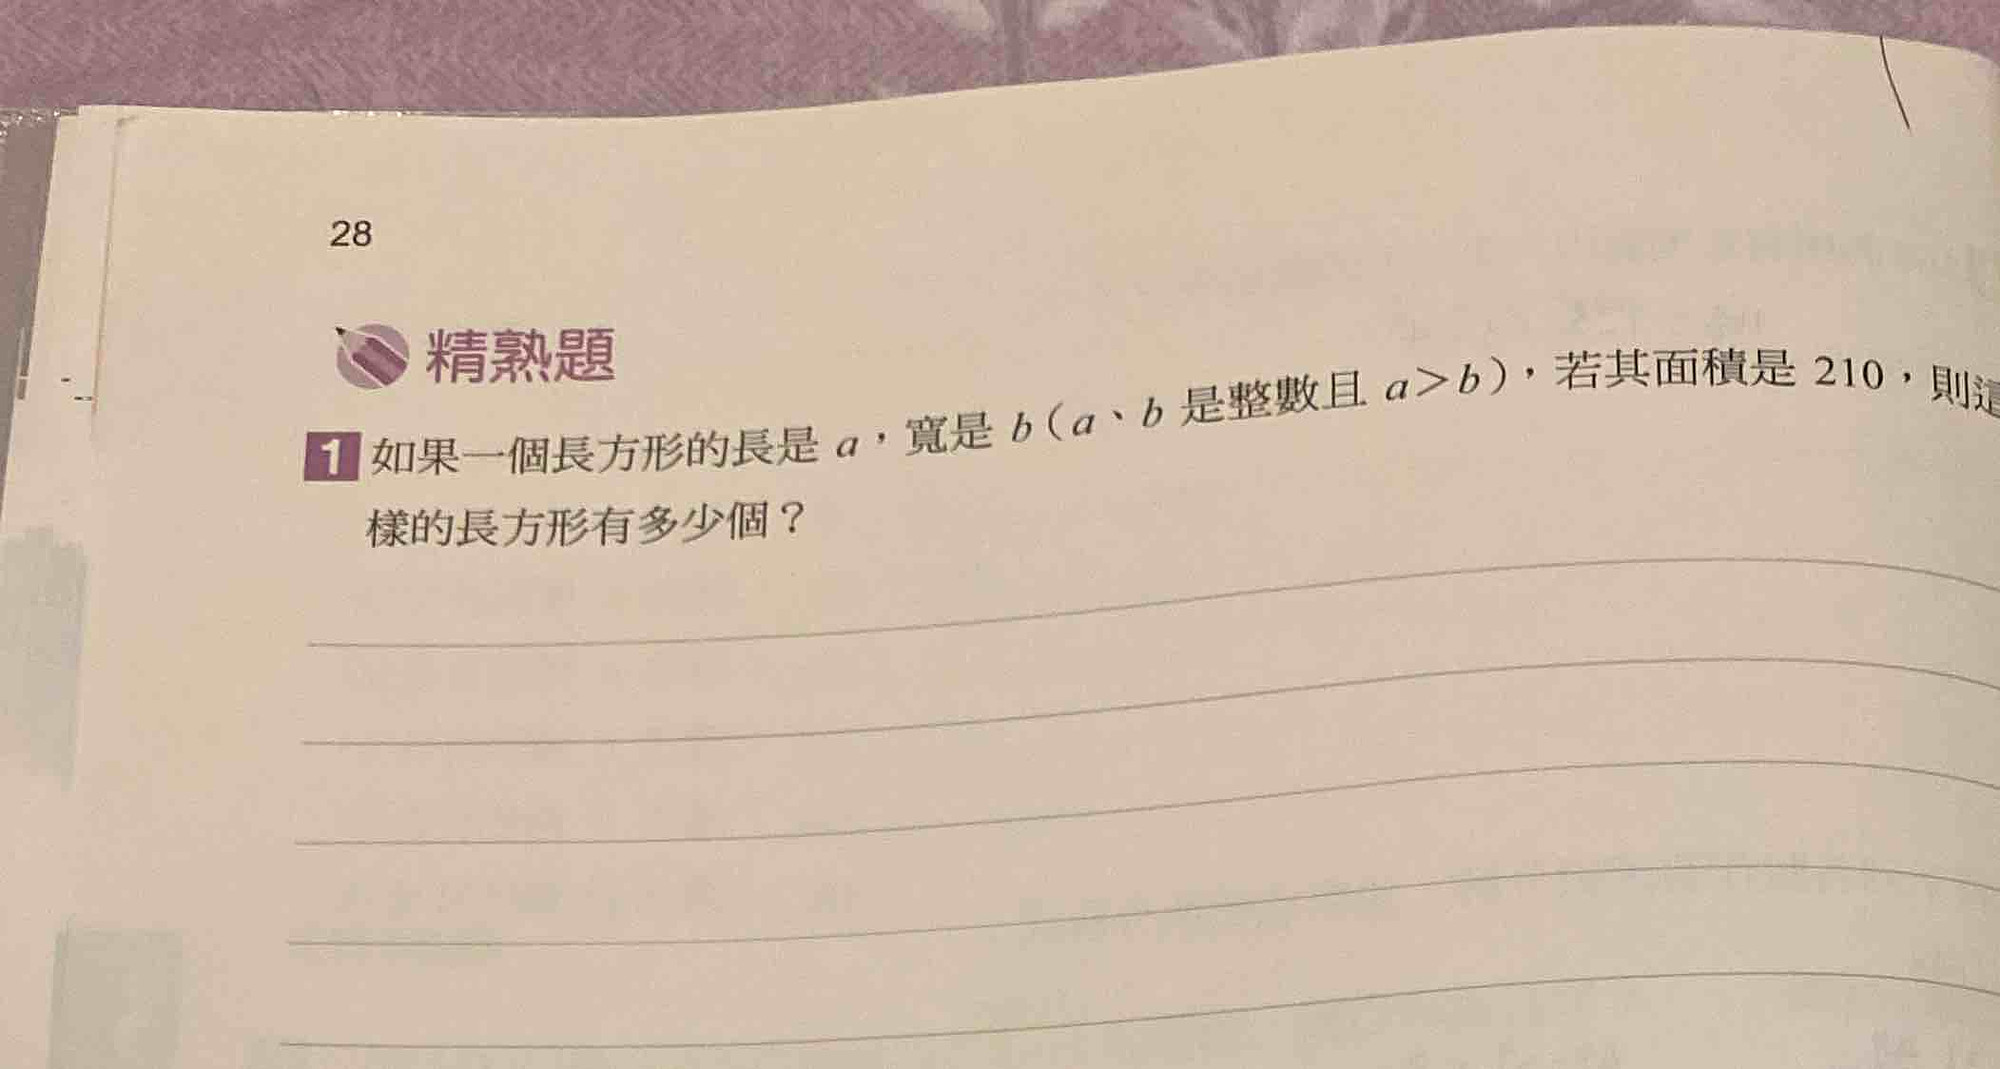 28
精熟題
1 如果一個長方形的長是 a，寬是 b（a、b 是整數且 a＞b），若其面積是 210，則這
樣的長方形有多少個？